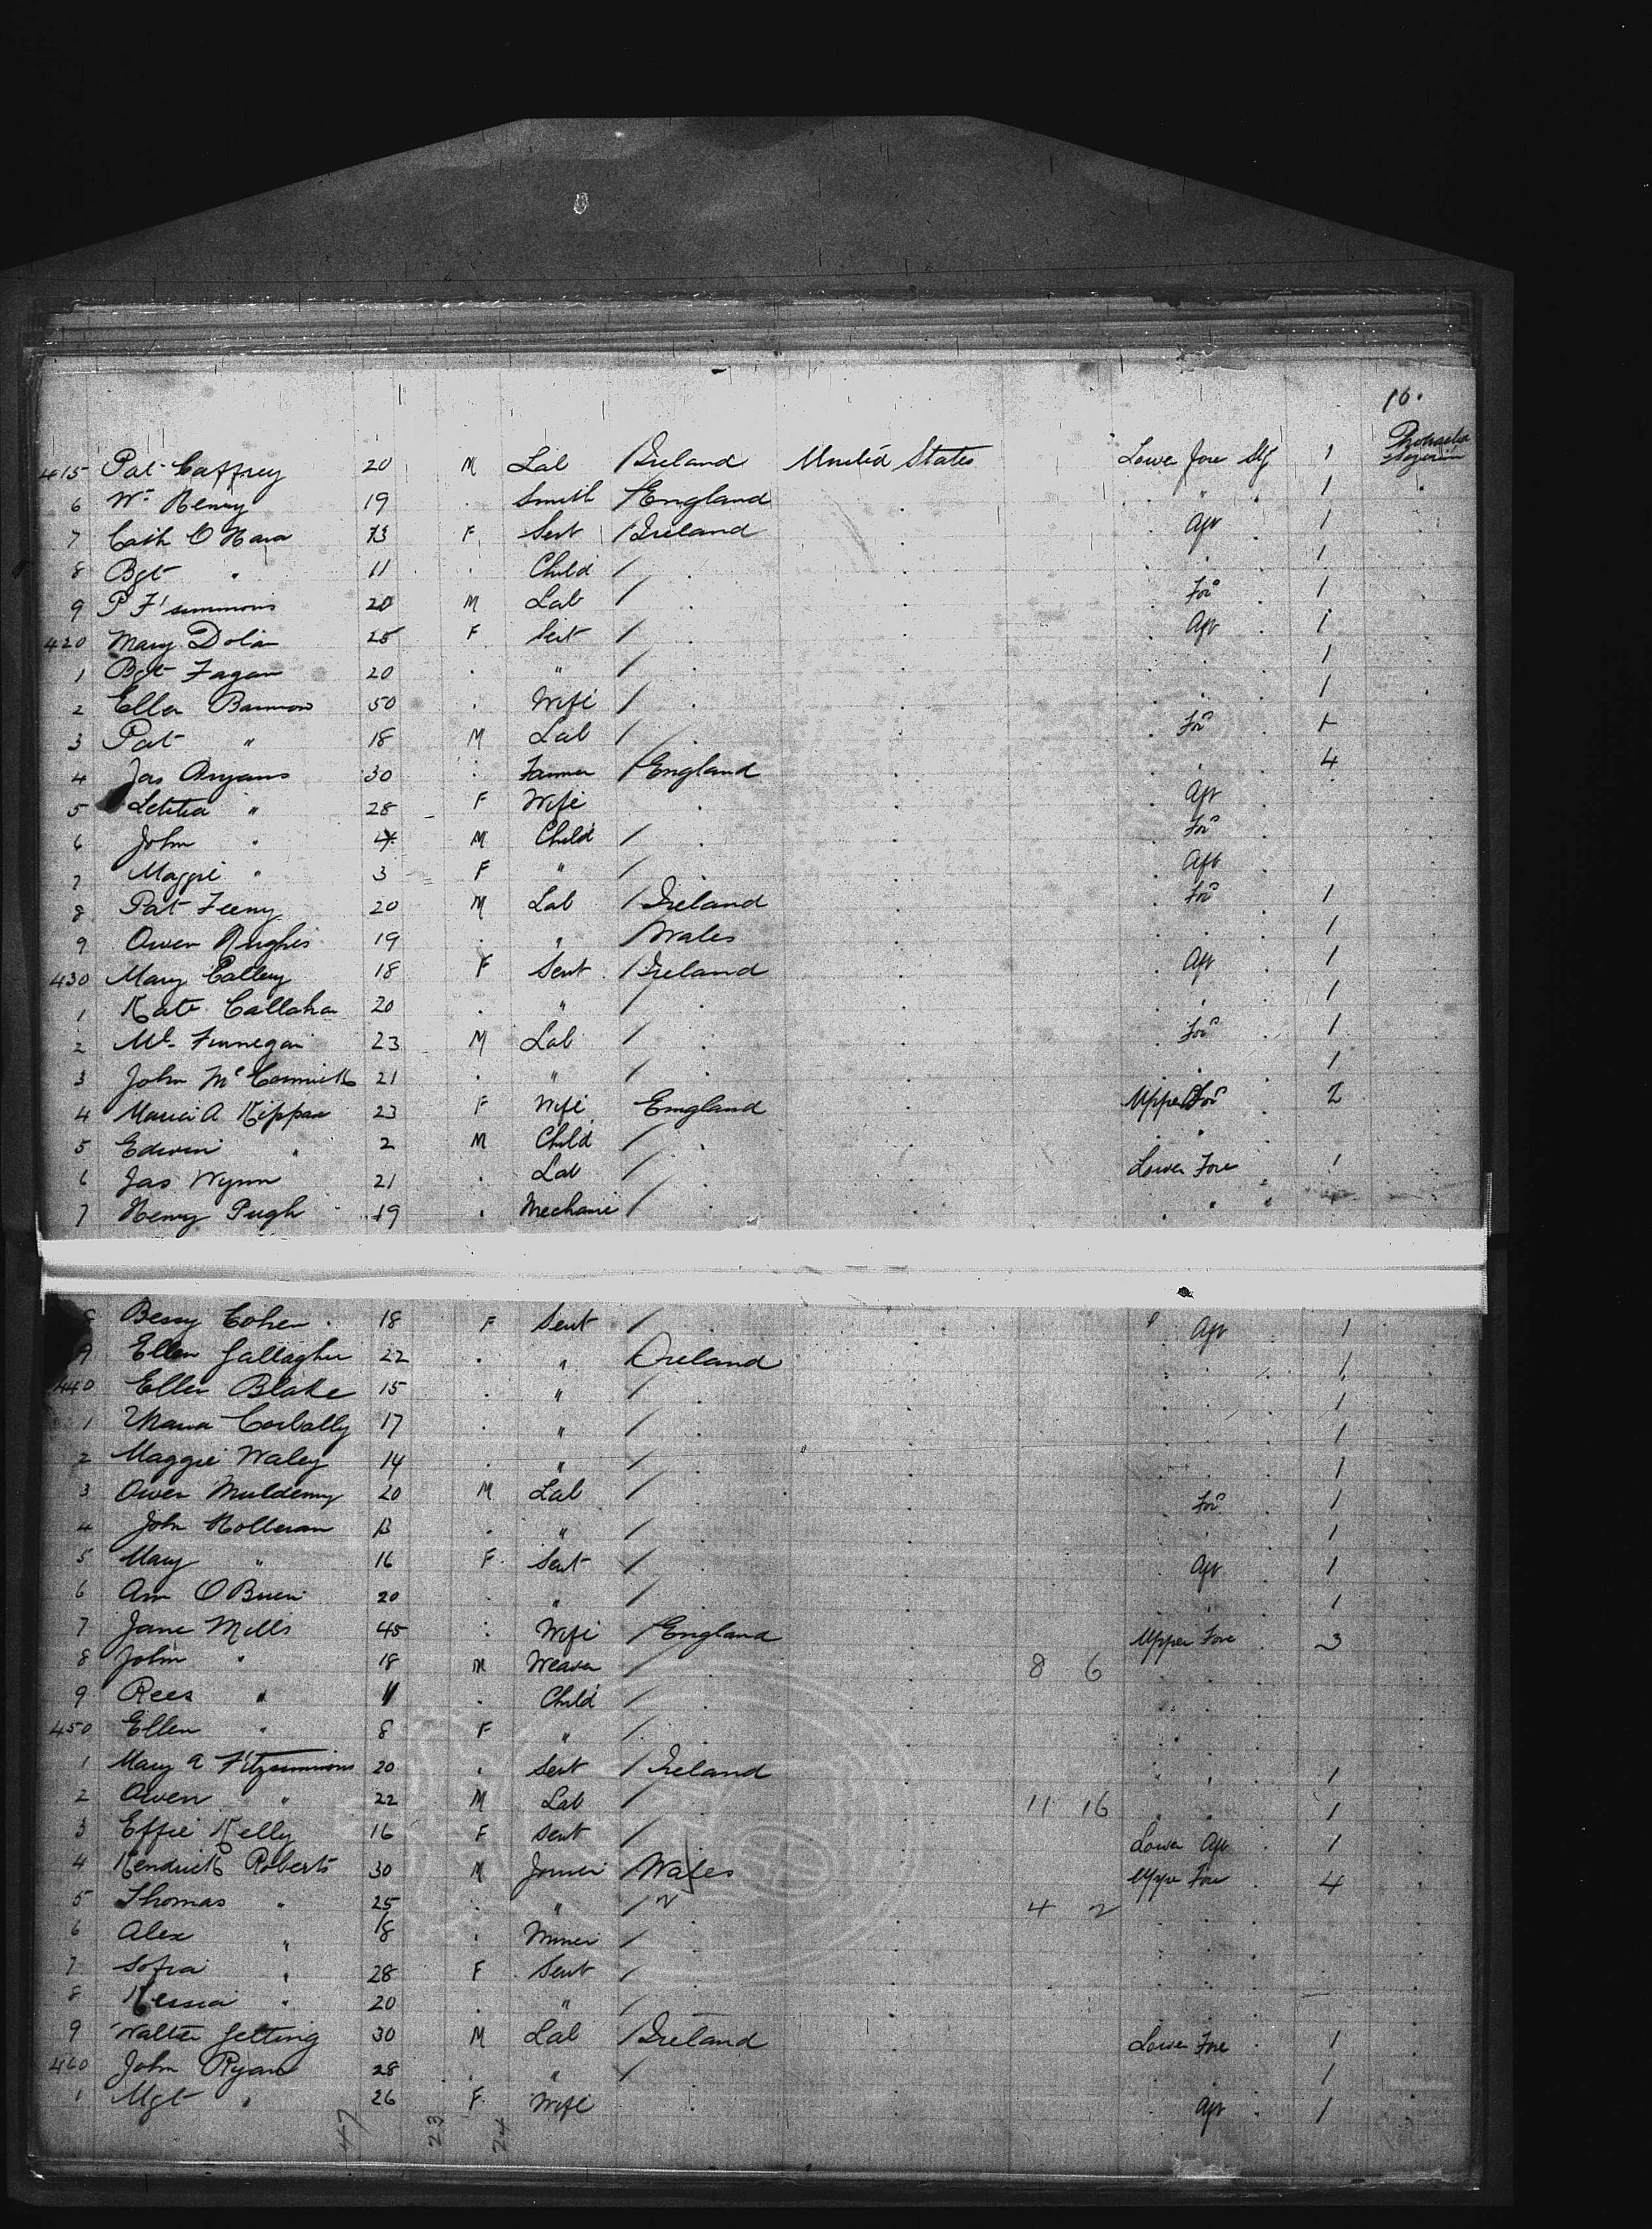 16.
415 Pat Caffrey 20 M Lab Ireland United States Lower Fore 1
6 Wm Henry 19 . Smith England " . 1
7 Cath O Hara 13 F Sert Ireland . Aft 1
8 Bgt " 11 . Child / . . . 1
9 P F'simmons 20 M Lab / . . For . 1
420 Mary Dolan 25 F Sert / . . Aft . 1
1 Bgt Fagan 20 . " / . . . . 1
2 Ellen Bannon 50 . Wife / . . . . 1
3 Pat " 18 M Lab / . . For . 1
4 Jas Bryans 30 . Farmer England . . . 4
5 Letitia " 28 F Wife . . Aft
6 John " 4 M Child / . . For
7 Maggie " 3 F " / . . Aft
8 Pat Feeny 20 M Lab Ireland . For 1
9 Owen Hughes 19 . " Wales . . . 1
430 Mary Callery 18 F Sert Ireland . Aft . 1
1 Kate Callahan 20 . " / . . . . 1
2 Ml Finnegan 23 M Lab / . . For . 1
3 John McCormick 21 . " / . . . . 1
4 Maria A 23 F Wife England . Upper For 2
5 Edwin " 2 M Child / . . "
6 Jas Wynn 21 . Lab / . . Lower Fore 1
7 Henry Pugh 19 . Mechanic / . . " 1
8 Bessy Cohen 18 F Sert / . . " Aft . 1
9 Ellen Gallagher 22 . " Ireland . . . 1
440 Ellen Blake 15 . " / . . . . 1
1 Maria Corbally 17 . " / . . . . 1
2 Maggie Waley 14 . " / . . . . 1
3 Owen Muldenny 20 M Lab / . . For . 1
4 John Holleran 13 . " / . . . . 1
5 Mary " 16 F Sert / . . Aft . 1
6 Ann O Brien 20 . " / . . . . 1
7 Jane Mills 45 . Wife England . Upper Fore 3
8 John " 18 M Weaver / . 8 6 . .
9 Rees " 11 . Child / . . " .
450 Ellen " 8 F " / . . " .
1 Mary A Fitzsimmons 20 . Sert Ireland . " . 1
2 Owen " 22 M Lab / . 11 16 . . 1
3 Effie Kelly 16 F Sert / . . Lower Aft . 1
4 Kendrick Roberts 30 M Joiner Wales . Upper Fore 4
5 Thomas " 25 . " / " . 4 2 . .
6 Alex " 18 . Miner / . . . .
7 Sofia " 28 F Sert / . . . .
8 " 20 . " / . . . .
9 Walter Getting 30 M Lab Ireland . Lower Fore 1
460 John Ryan 28 . " / . . . . 1
1 Mgt " 26 F Wife . . Aft . 1
47 23 24